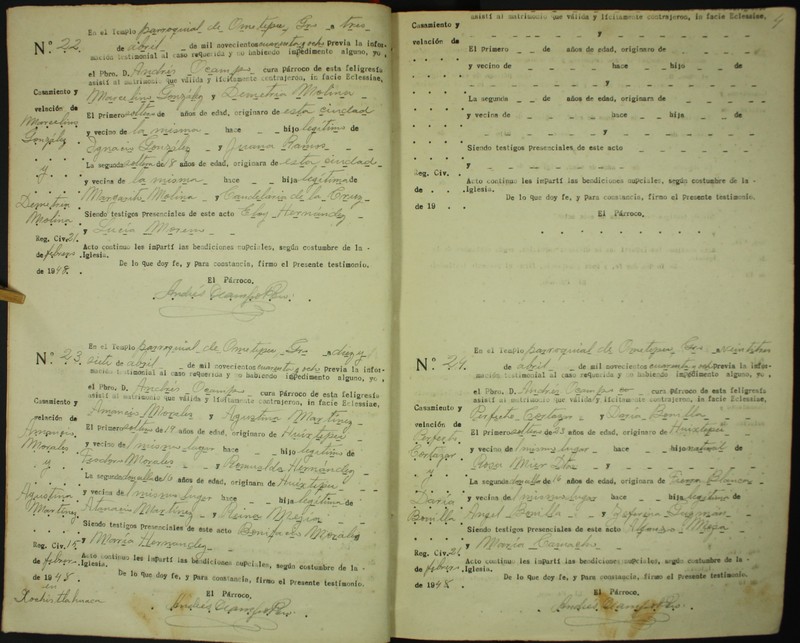 En el Templo parroquial de Ometepec, Gro. a tres
Nº. 22. de abril de mil novecientos cuarenta y ocho Previa la infor-
mación testimonial al caso requerida y no habiendo impedimento alguno, yo,
el Pbro. D. Andrés Ocampo cura Párroco de esta feligresía
asistí al matrimonio que válida y lícitamente contrajeron, in facie Ecclesiae,
Casamiento y Marcelino González y Demetria Molina
velación de El Primero soltero de años de edad, originaro de esta ciudad
Marcelino González y vecino de la misma hace hijo legítimo de
Ignacio González y Juana Ramos
y La segunda soltera de 18 años de edad, originara de esta ciudad
y vecina de la misma hace hija legítima de
Demetria Molina Margarito Molina y Candelaria de la Cruz
Siendo testigos Presenciales de este acto Eloy Hernández
y Lucía Moreno
Reg. Civ. 21. Acto continuo les impartí las bendiciones nupciales, según costumbre de la
de febrero Iglesia.
de 1948. De lo que doy fe, y Para constancia, firmo el Presente testimonio.
El Párroco.
Andrés Ocampo Pbro.
En el Templo parroquial de Ometepec, Gro. a diez y
Nº. 23. siete de abril de mil novecientos cuarenta y ocho Previa la infor-
mación testimonial al caso requerida y no habiendo impedimento alguno, yo,
el Pbro. D. Andrés Ocampo cura Párroco de esta feligresía
asistí al matrimonio que válida y lícitamente contrajeron, in facie Ecclesiae,
Casamiento y Amancio Morales y Agustina Martínez
velación de El Primero soltero de 19 años de edad, originaro de Huixtepec
Amancio Morales y vecino de mismo lugar hace hijo legítimo de
Morales y Romualda Hernández
y La segunda de 16 años de edad, originara de Huixtepec
Agustina Martínez y vecina de mismo lugar hace hija legítima de
Atanacio Martínez y Reina Mejía
Siendo testigos Presenciales de este acto Bonifacio Morales
y María Hernández
Reg. Civ. Acto continuo les impartí las bendiciones nupciales, según costumbre de la
de febrero Iglesia.
de 1948. De lo que doy fe, y Para constancia, firmo el Presente testimonio.
en Xochistlahuaca
El Párroco,
Andrés Ocampo Pbro.
4
asistí al matrimonio que válida y lícitamente contrajeron, in facie Ecclesiae,
Casamiento y
y
velación de
El Primero de años de edad, originaro de
y vecino de hace hijo de
y
La segunda de años de edad, originara de
y vecina de hace hija de
y
Siendo testigos Presenciales de este acto
y
Reg. Civ. Acto continuo les impartí las bendiciones nupciales, según costumbre de la
de Iglesia.
de 19 De lo que doy fe, y Para constancia, firmo el Presente testimonio.
El Párroco,
En el Templo parroquial de Ometepec, Gro. a veintitres
Nº. 24. de abril de mil novecientos cuarenta y ocho Previa la infor-
mación testimonial al caso requerida y no habiendo impedimento alguno, yo,
el Pbro. D. Andrés Ocampo cura Párroco de esta feligresía
asistí al matrimonio que válida y lícitamente contrajeron, in facie Ecclesiae,
Casamiento y Perfecto Cortazar y Daría Bonilla
velación de El Primero soltero de 23 años de edad, originaro de Huixtepec
Perfecto Cortazar y vecino de mismo lugar hace hijo natural de
Rosa y
y La segunda de 16 años de edad, originara de Tierra Blanca
Daría Bonilla y vecina de mismo lugar hace hija legítima de
Angel Bonilla y Zeferina Guzmán
Siendo testigos Presenciales de este acto Meza
y María Camacho
Reg. Civ. 21. Acto continuo les impartí las bendiciones nupciales, según costumbre de la
de febrero Iglesia.
de 1948. De lo que doy fe, y Para constancia, firmo el Presente testimonio.
El Párroco,
Andrés Ocampo Pbro.